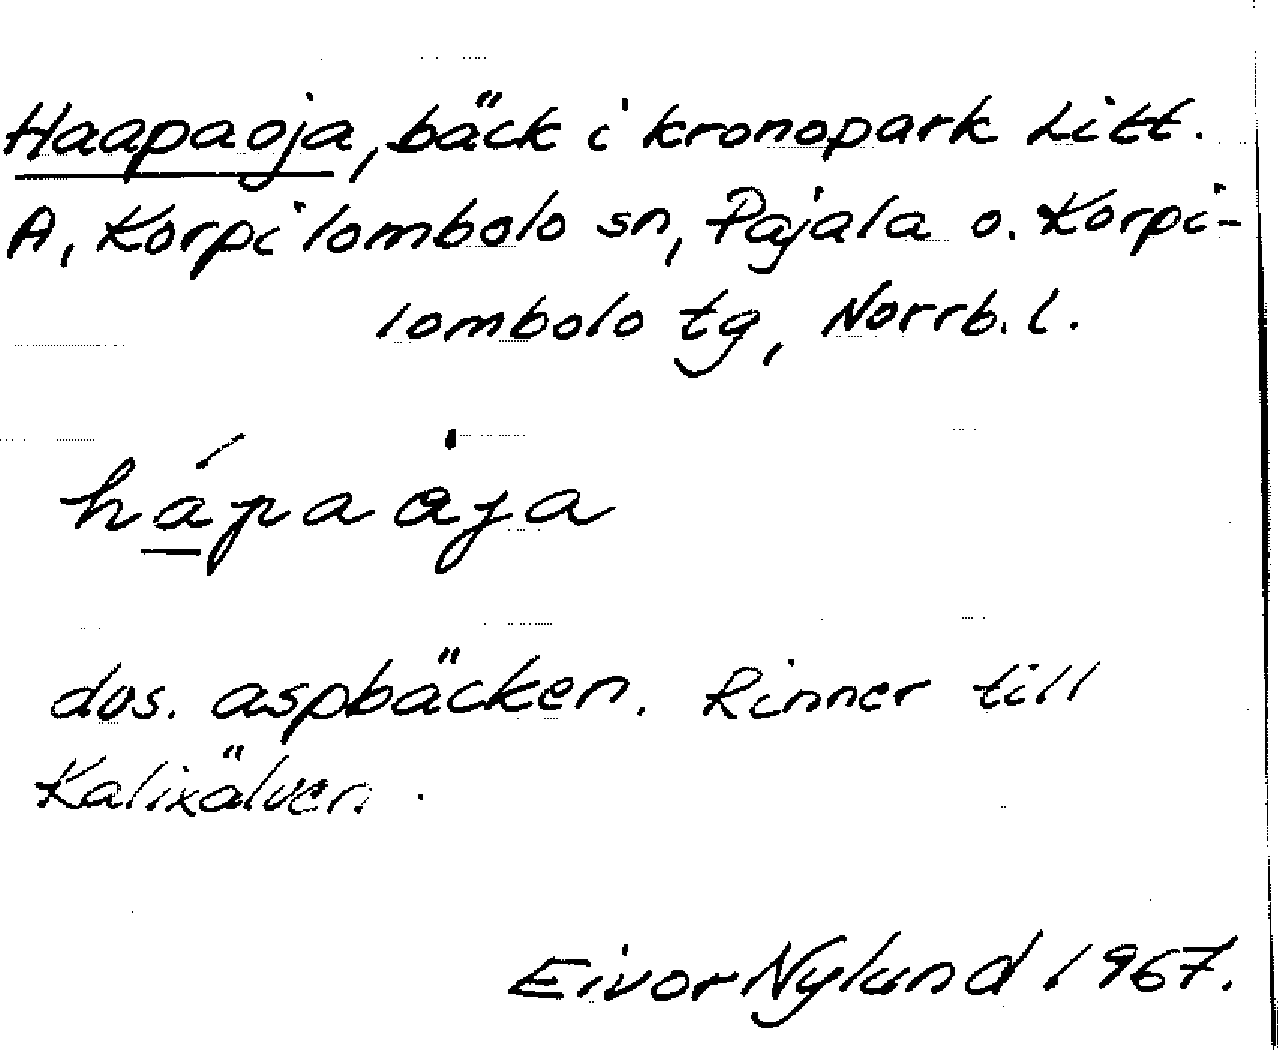 Haapaoja, bäck i kronopark Litt.
A, Korpilombolo sn, Pajala o. Korpi-
lombolo tg, Norrb. l.
há̱pa ȧja
dvs. aspbäcken. Rinner till
Kalixälven.
Eivor Nylund 1967.